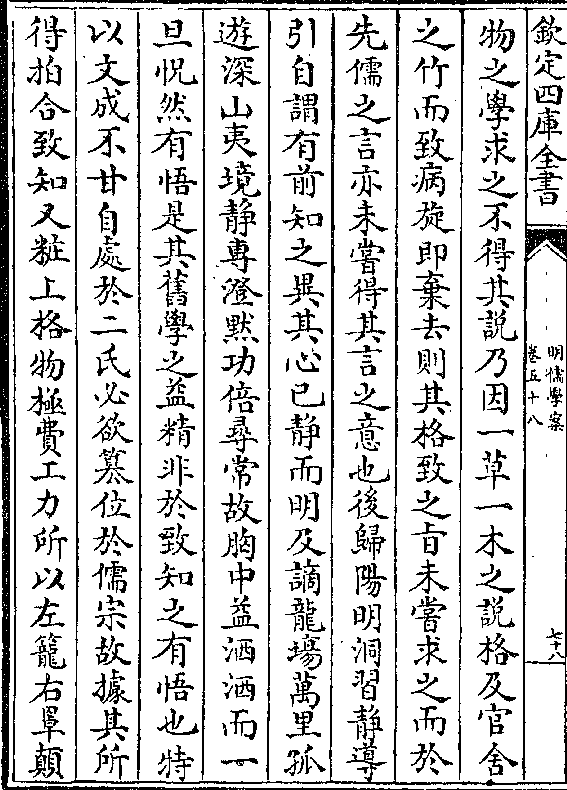 欽定四庫全書
明儒學案
卷五十八
七十八
物之學求之不得其説乃因一草一木之説格及官舍
之竹而致病旋即棄去則其格致之旨未嘗求之而於
先儒之言亦未嘗得其言之意也後歸陽明洞習静導
引自謂有前知之異其心已静而明及謫龍塲萬里孤
遊深山夷境静專澄黙功倍尋常故胸中益洒洒而一
旦怳然有悟是其舊學之益精非於致知之有悟也特
以文成不甘自處於二氏必欲簒位於儒宗故據其所
得拍合致知又粧上格物極費工力所以左籠右罩顛